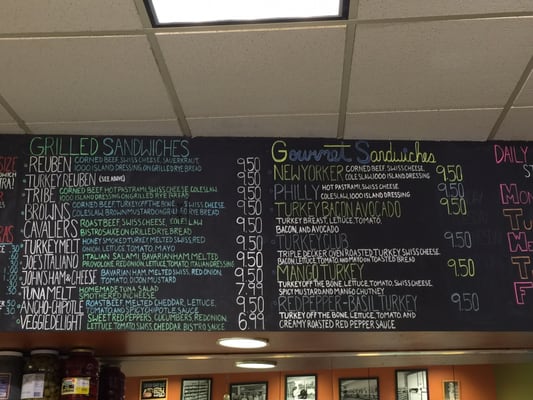 GRILLED SANDWICHES
REUBEN CORNED BEEF, SWISS CHEESE, SAUERKRAUT, 9.50
1000 ISLAND DRESSING ON GRILLED RYE BREAD
TURKEY REUBEN (SEE ABOVE) 9.50
TRIBE CORNED BEEF, HOT PASTRAMI, SWISS CHEESE, COLESLAW 9.50
1000 ISLAND DRESSING ON GRILLED RYE BREAD
BROWNS CORNED BEEF, TURKEY, SWISS CHEESE, 9.50
COLESLAW, BROWN MUSTARD ON GRILLED RYE BREAD
CAVALIERS ROAST BEEF, SWISS CHEESE, COLESLAW 9.50
BISTRO SAUCE ON GRILLED RYE BREAD
TURKEY MELT HONEY SMOKED TURKEY MELTED SWISS, RED
ONION, LETTUCE, TOMATO, MAYO
JOE'S ITALIANO ITALIAN SALAMI BAVARIAN HAM, MELTED 9.50
PROVOLONE, RED ONION, LETTUCE, TOMATO, ITALIAN DRESSING
JOHN'S HAM & CHEESE BAVARIAN HAM, MELTED SWISS, RED ONION,
TOMATO, DIJON MUSTARD
TUNA MELT HOMEMADE TUNA SALAD
SMOTHERED IN CHEESE
ANCHO-CHIPOTLE ROAST BEEF, MELTED CHEDDAR, LETTUCE, 9.50
TOMATO AND SPICY CHIPOTLE SAUCE
VEGGIE DELIGHT SWEET RED PEPPERS, CUCUMBERS, RED ONION, 6.99
LETTUCE, TOMATO, SWISS, CHEDDAR, BISTRO SAUCE
Gourmet Sandwiches
NEW YORKER CORNED BEEF, SWISS CHEESE, 9.50
COLESLAW, 1000 ISLAND DRESSING
PHILLY HOT PASTRAMI, SWISS CHEESE, 9.50
COLESLAW, 1000 ISLAND DRESSING
TURKEY BACON AVOCADO 9.50
TURKEY BREAST, LETTUCE, TOMATO,
BACON, AND AVOCADO
TURKEY CLUB 9.50
TRIPLE DECKER OVEN ROASTED TURKEY, SWISS CHEESE,
BACON, LETTUCE, TOMATO AND MAYO ON TOASTED BREAD
MANGO TURKEY 9.50
TURKEY OFF THE BONE, LETTUCE, TOMATO, SWISS CHEESE,
SPICY MUSTARD AND MANGO CHUTNEY
RED PEPPER-BASIL TURKEY 9.50
TURKEY OFF THE BONE, LETTUCE, TOMATO, SWISS CHEESE, AND
CREAMY ROASTED RED PEPPER SAUCE
DAILY